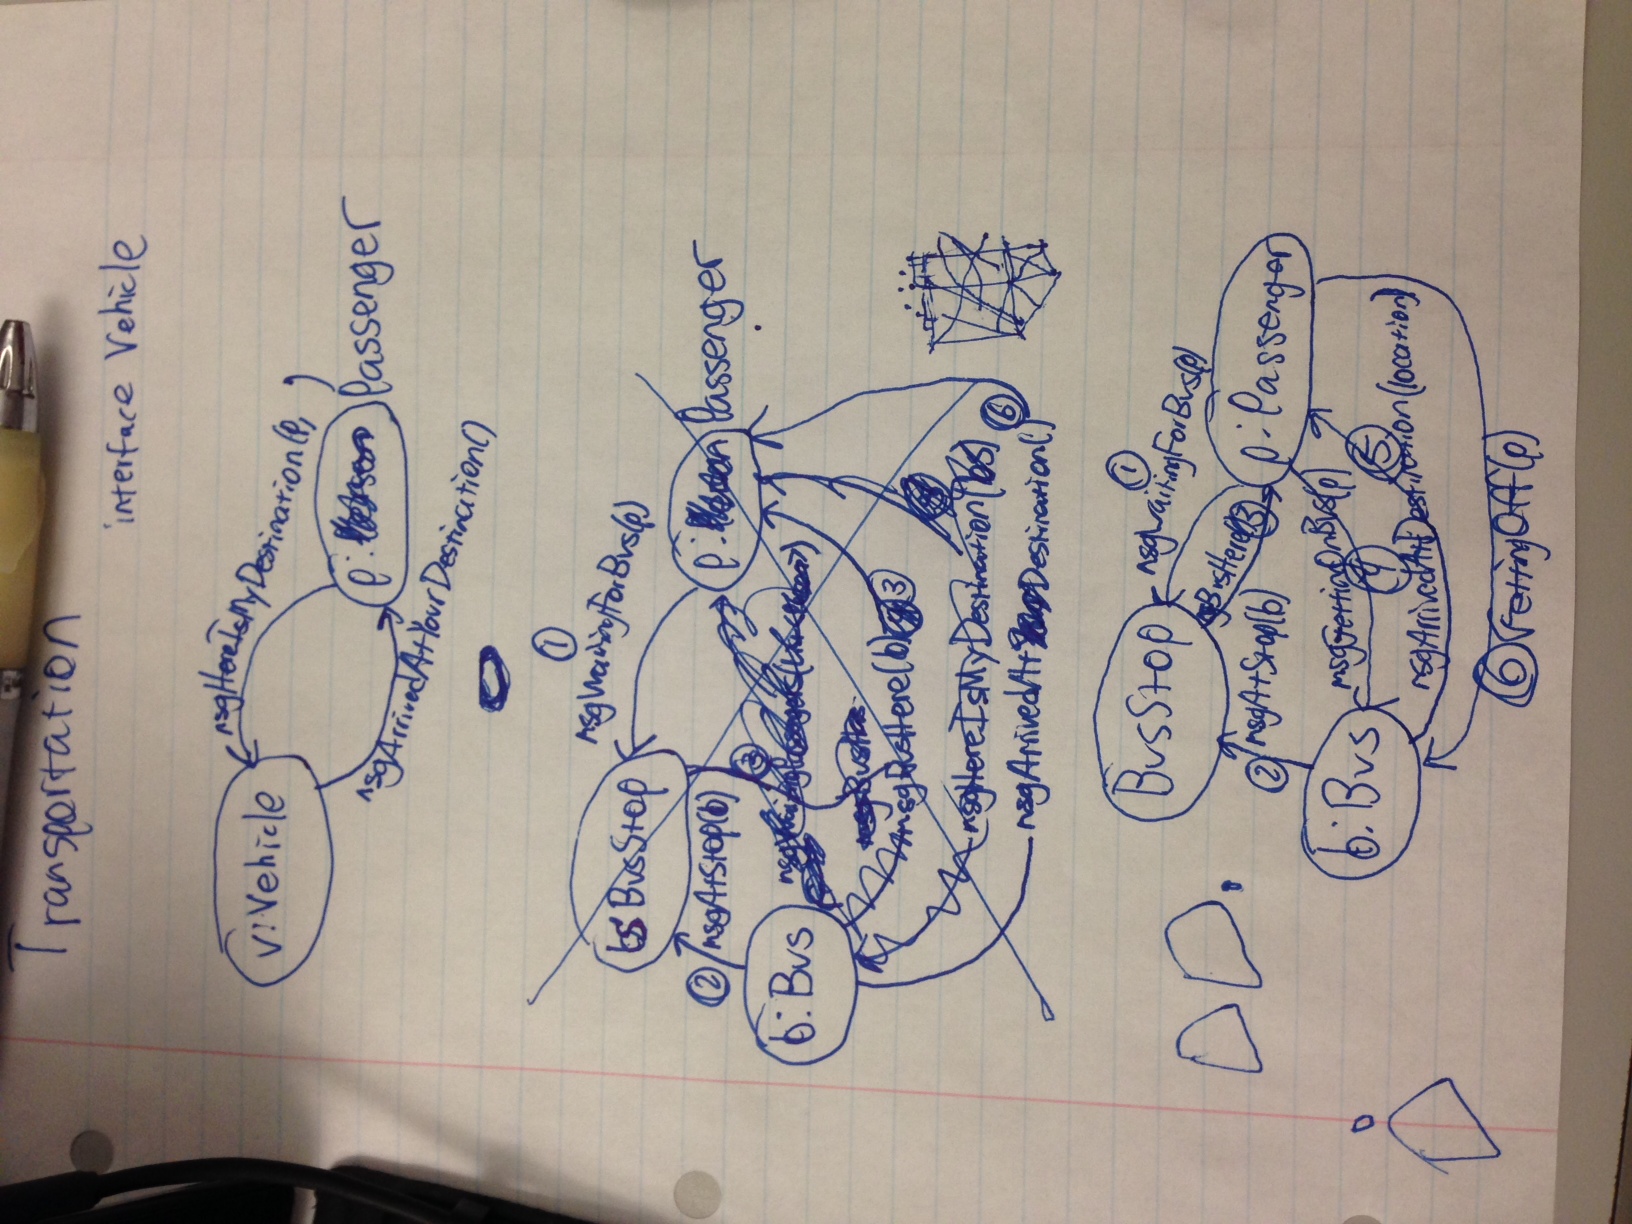 Transportation
interface Vehicle
msgHereIsMyDestination(p,
v:Vehicle
p: Passenger
msgArrivedAtYourDestination()
1
msgWaitingForBus(p)
bs BusStop
2 msgAtStop(b)
p: Passenger
3
b:Bus
msgBusHere(b) 3
msgHereIsMyDestination(bs)
6
msgArrivedAt Destination()
1
BusStop
msgWaitingForBus(p)
2 msgAtStop(b)
3
p:Passenger
b:Bus
msgGettingOnBus(p)
4
5
msgArrivedAtDestination(location)
6 GettingOff(p)